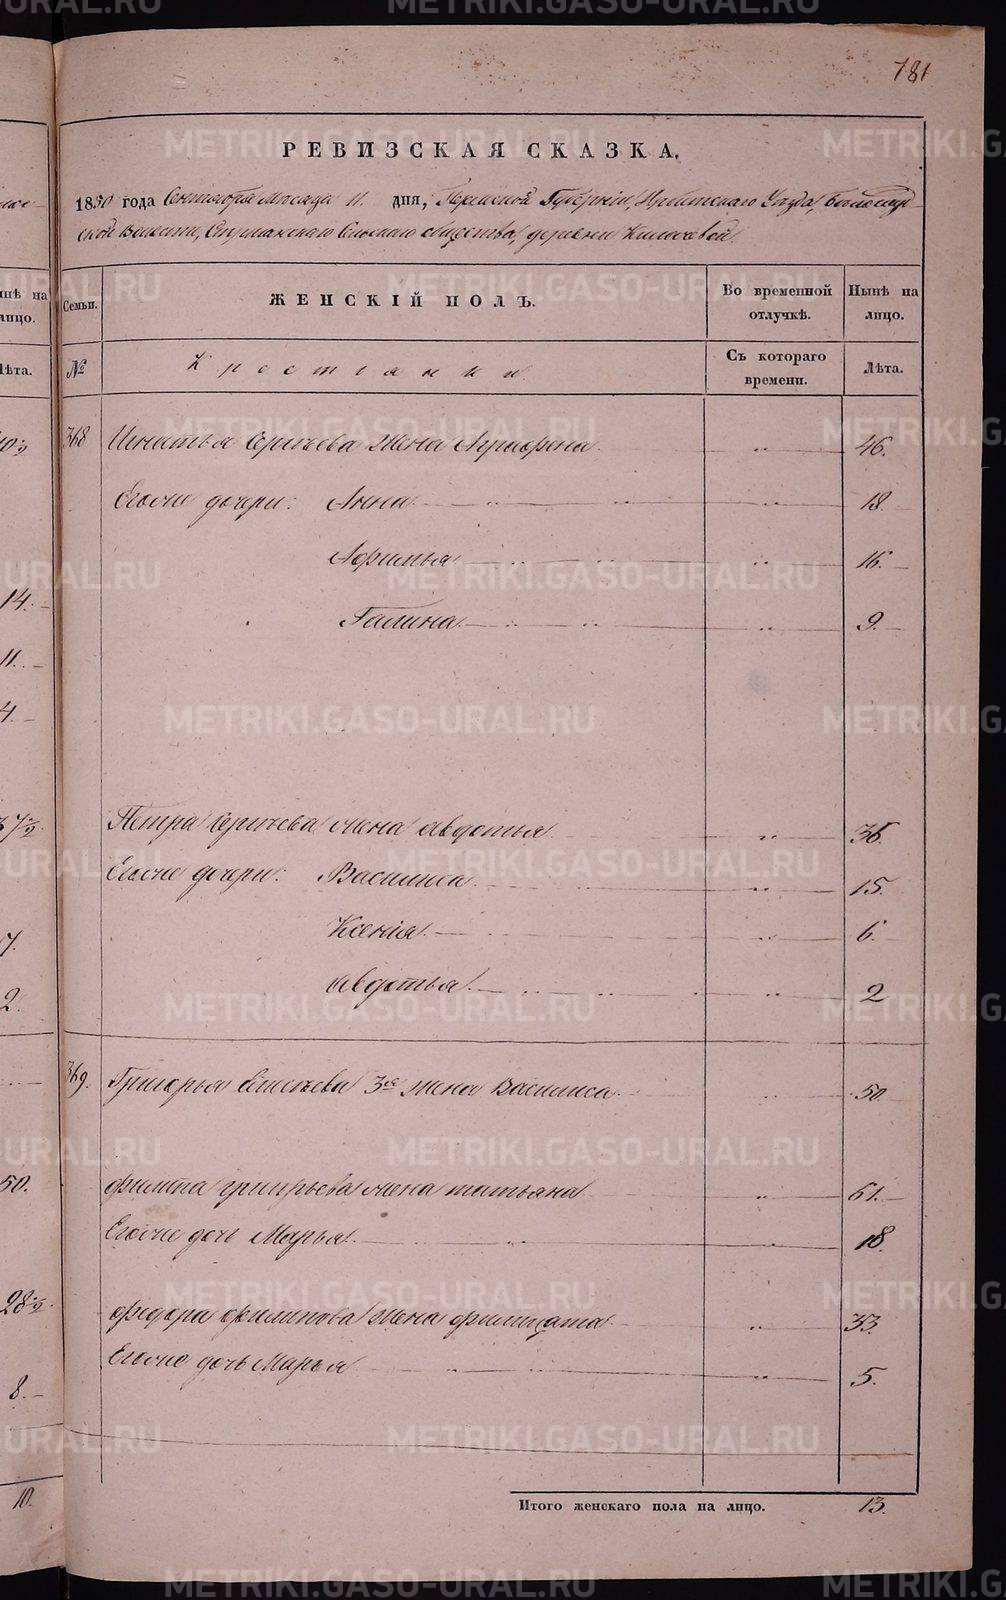 781
РЕВИЗСКАЯ СКАЗКА.
1850 года Сентября Месяца 11. дня, Пермской Губернии, Ирбитскаго Уезда, Белослуд-
ской Волости, Сельскаго общества, деревни Килачевой.
Семьи.
ЖЕНСКІЙ ПОЛЪ.
Во временной отлучкѣ.
Нынѣ на лицо.
№
Крестьянки
Съ котораго времени.
Лѣта.
368 Игнатья Сергѣева жена Аграфена 46.
Егоже дочери: Анна 18
Афимья 16.
Галина 9.
Петра Сергѣева жена Авдотья 36.
Егоже дочери: Васииса 15.
Ксенія 6.
Авдотья 2
369. Григорья Елисѣева 3я жена Василиса 50
Филипа Григорьева жена Татьяна 61.
Егоже дочь Марья 18.
Федора Филипова жена 33.
Егоже дочь Марья 5.
Итого женскаго пола на лицо. 13.
ынѣ на
лицо.
Лѣта.
14.
11.
4
7.
2.
50.
28
8.
10.
METRIKI.GASO-URAL.RU